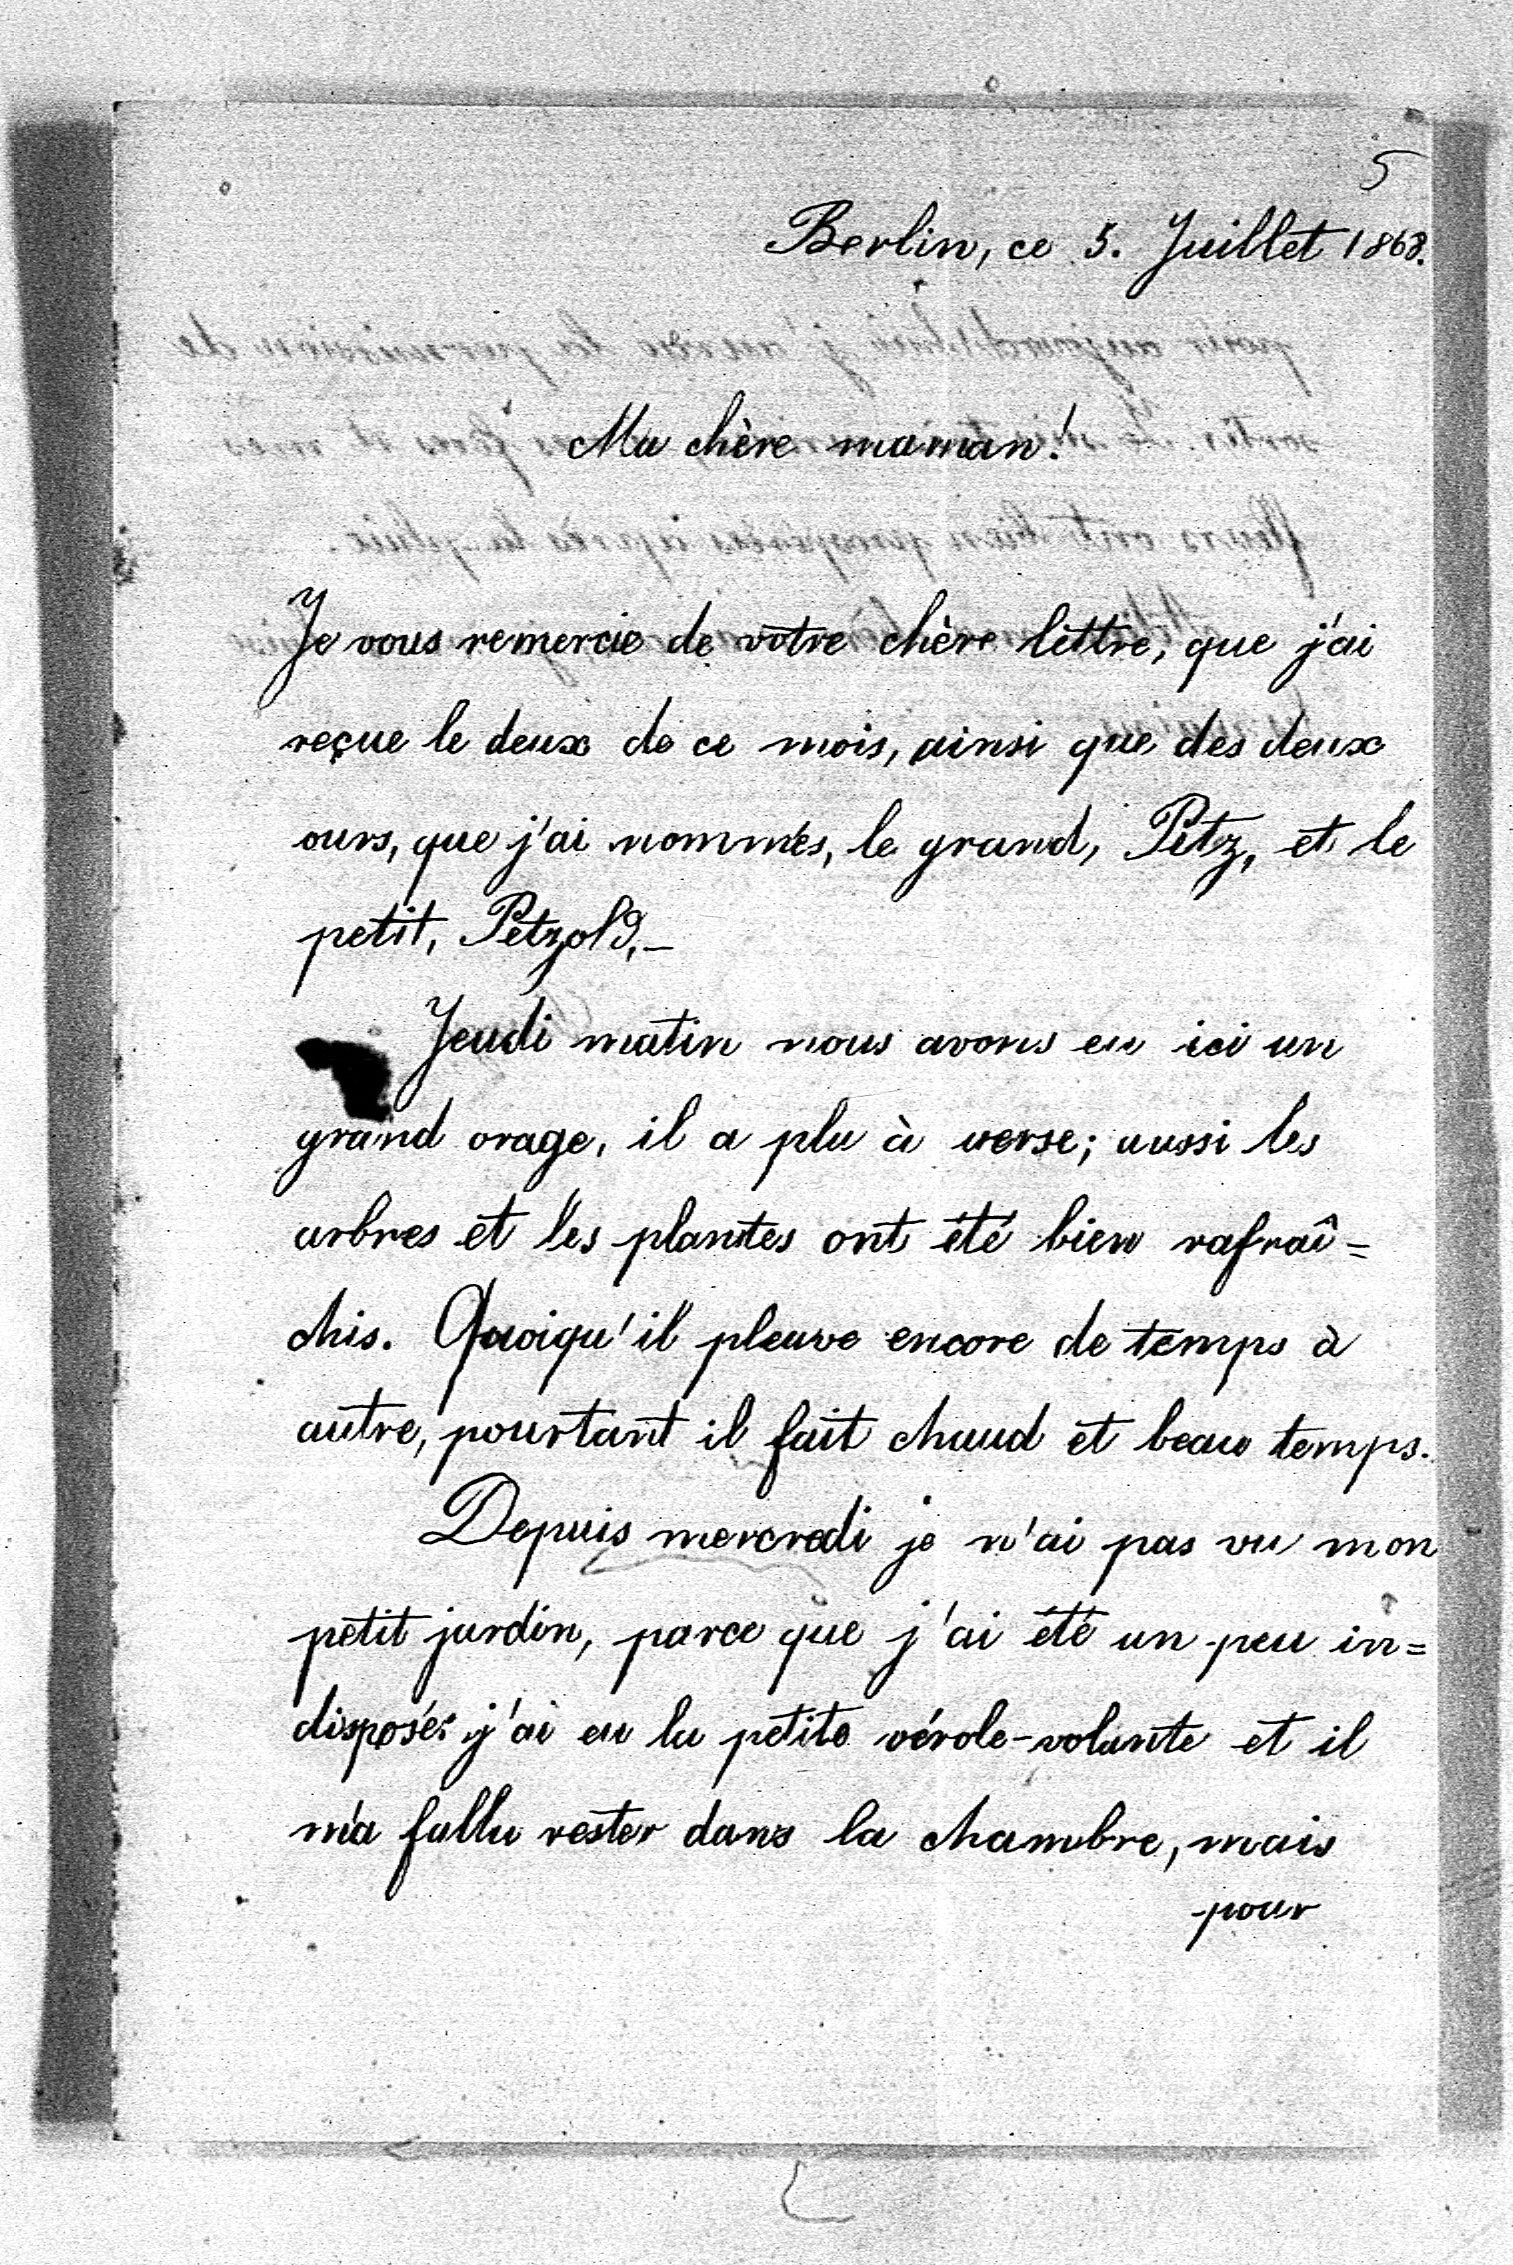 5
Berlin, ce 5. Juillet 1868.
Ma chère maman!
Je vous remercie de votre chère lettre, que j'ai
reçue le deux de ce mois, ainsi que des deux
ours, que j'ai nommés, le grand, Petz, et le
petit, Petzold.—
Jeudi matin nous avons eu ici un
grand orage, il a plu à verse; aussi les
arbres et les plantes ont été bien rafraî=
chis. Quoiqu'il pleuve encore de temps à
autre, pourtant il fait chaud et beau temps.
Depuis mercredi je n'ai pas vu mon
petit jardin, parce que j'ai été un peu in=
disposé: j'ai eu la petite vérole-volante et il
m'a fallu rester dans la chambre, mais
pour